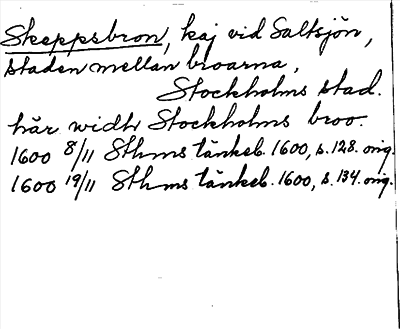 Skeppsbron, kaj vid Saltsjön,
staden mellan broarna,
Stockholms stad.
här widh Stockholms broo.
1600 8/11 Sthms tänkeb. 1600, s. 128. orig.
1600 19/11 Sthms tänkeb. 1600, s. 134. orig.